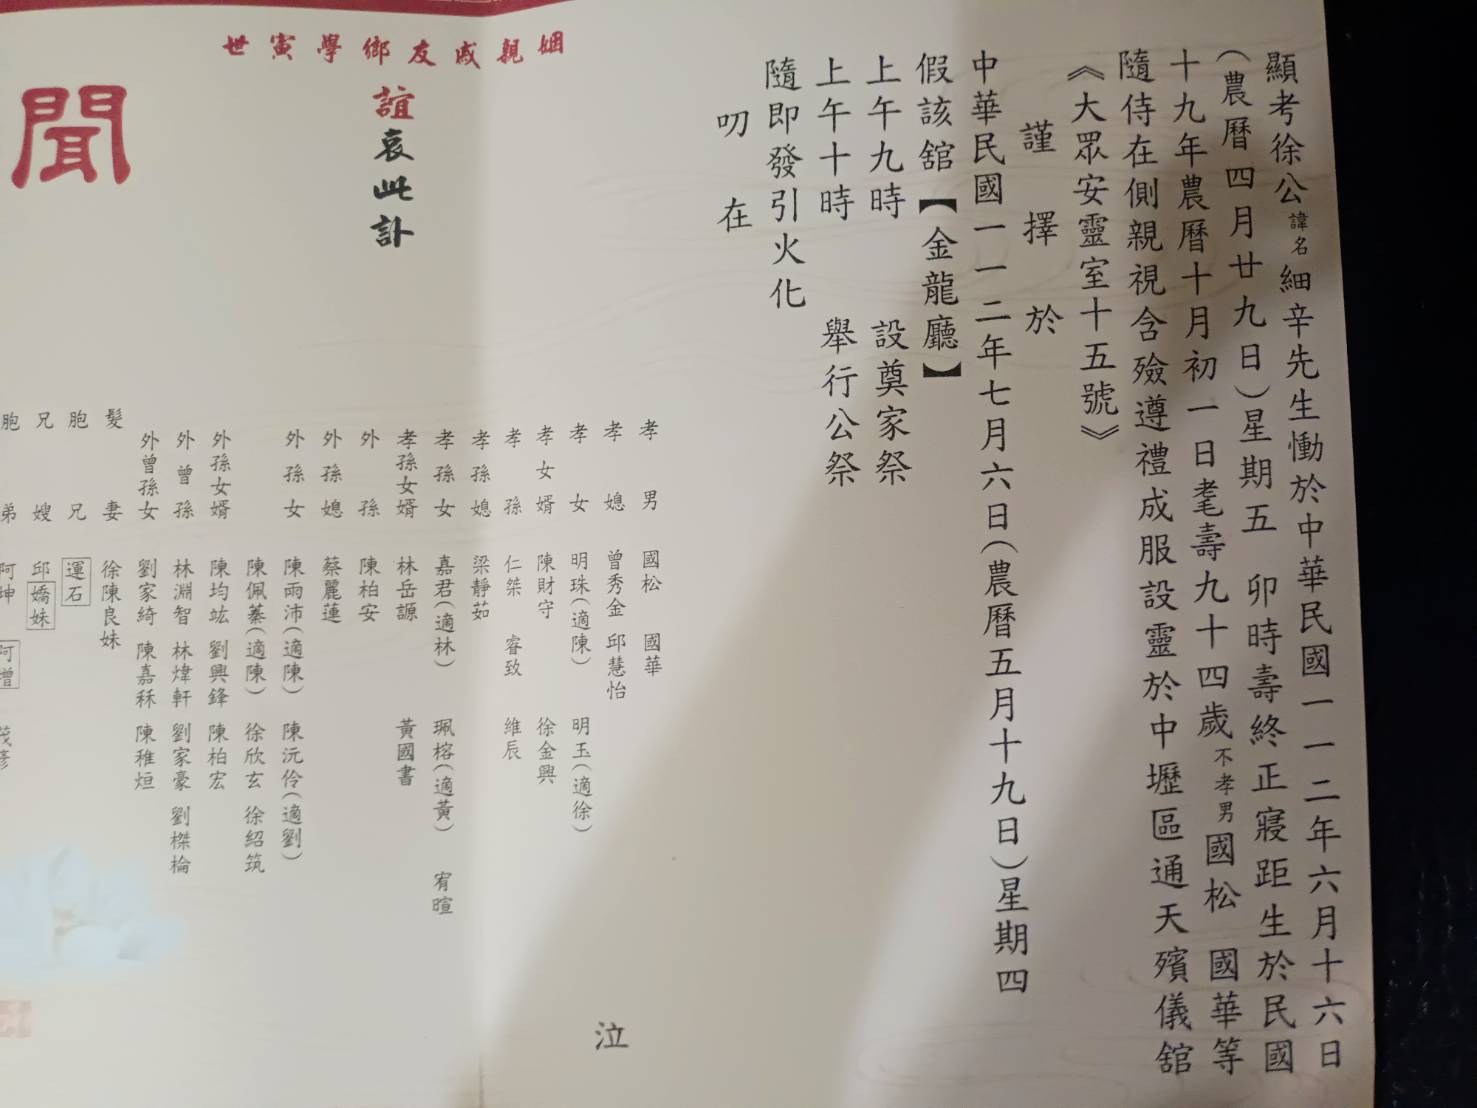 顯考徐公諱名細辛先生慟於中華民國一一二年六月十六日
（農曆四月廿九日）星期五 卯時壽終正寢距生於民國
十九年農曆十月初一日耄壽九十四歲不孝男國松 國華等
隨侍在側親視含殮遵禮成服設靈於中壢區通天殯儀舘
《大眾安靈室十五號》
謹擇於
中華民國一一二年七月六日（農曆五月十九日）星期四
假該舘【金龍廳】
上午九時 設奠家祭
上午十時 舉行公祭
隨即發引火化
叨在
姻親戚友鄉學寅世
誼哀此訃
聞
孝男 國松 國華
孝媳 曾秀金 邱慧怡
孝女 明珠（適陳） 明玉（適徐）
孝女婿 陳財守 徐金興
孝孫 仁桀 睿致 維辰
孝孫媳 梁靜茹
孝孫女 嘉君（適林） 珮榕（適黃） 宥暄
孝孫女婿 林岳謜 黃國書
外孫 陳柏安
外孫媳 蔡麗蓮
外孫女 陳雨沛（適陳） 陳沅伶（適劉）
陳佩蓁（適陳） 徐欣玄 徐紹筑
外孫女婿 陳均竑 劉興鋒 陳柏宏
外曾孫 林淵智 林煒軒 劉家豪 劉桀棆
外曾孫女 劉家綺 陳嘉秝 陳稚烜
髮妻 徐陳良妹
胞兄 運石
兄嫂 邱嬌妹
胞弟 阿坤
泣